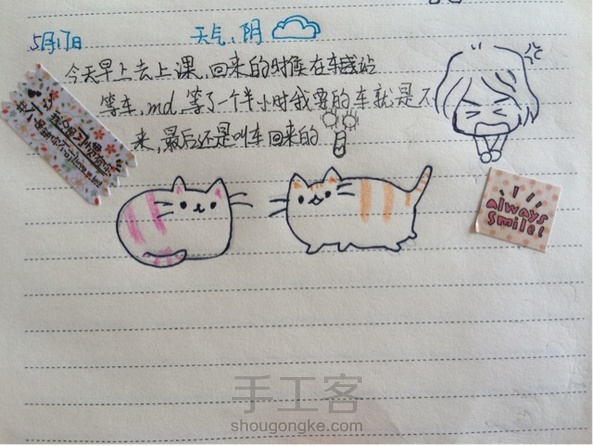 5月17日 天气：阴
今天早上去上课，回来的时候在车站
等车，md，等了一个半小时我要的车就是不
来，最后还是叫车回来的
always
smile!
手工客
shougongke.com